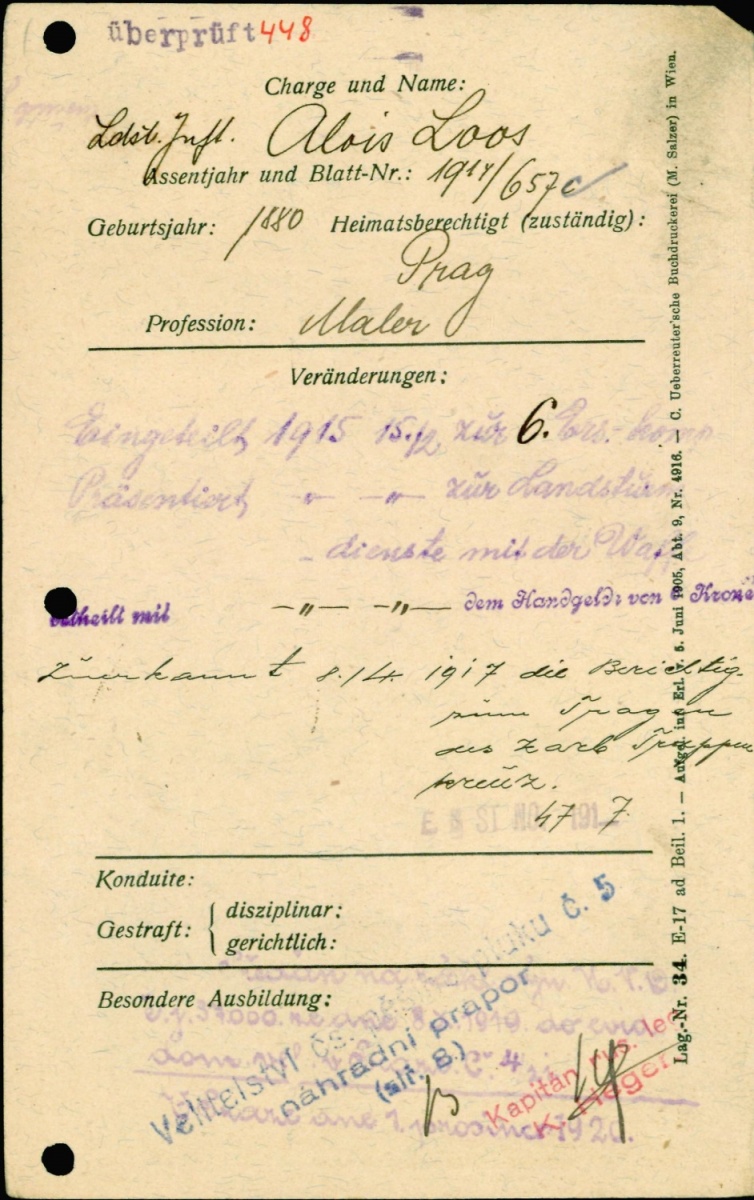 überprüft 448
Charge und Name:
Ldst. Inft. Alois Loos
Assentjahr und Blatt-Nr.: 1914/657c
Geburtsjahr: 1880 Heimatsberechtigt (zuständig):
Prag
Profession: Maler
Veränderungen:
Eingeteilt 1915 15./2 zur 6. Ers-komp
Präsentiert —"— —"— zur Landsturm
dienste mit der Waffe
betheilt mit —"— —"— dem Handgelde von 6 Krone
Zuerkannt 8./4. 1917 die Berichtig.
zum Tragen
des Karls Truppen
kreuz.
Konduite:
Gestraft: { disziplinar:
gerichtlich:
Besondere Ausbildung:
Velitelství čs. pěšího pluku č. 5
náhradní prapor
(slř. 8.)
Kapitán rus. leg.
1920.
Lag.-Nr. 34. E-17 ad Beil. 1. — Aufgel. im Erl. v. 5. Juni 1905, Abt. 9, Nr. 4916. — C. Ueberreuter'sche Buchdruckerei (M. Salzer) in Wien.